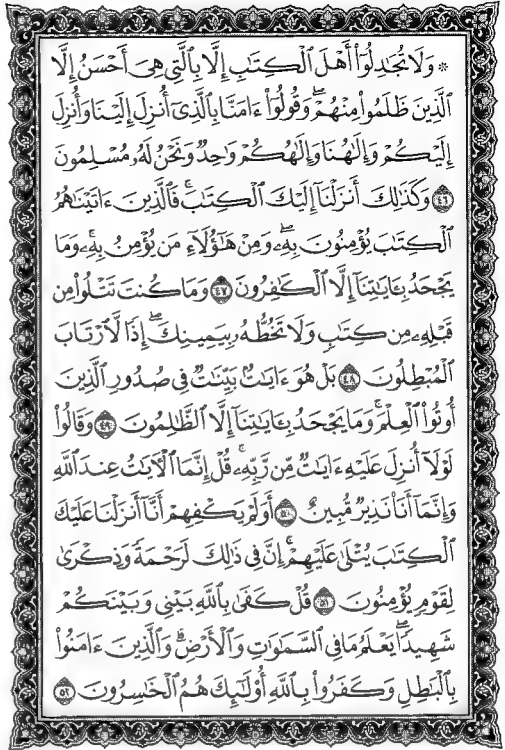 * وَلَا تُجَـٰدِلُوٓا۟ أَهْلَ ٱلْكِتَـٰبِ إِلَّا بِٱلَّتِى هِىَ أَحْسَنُ إِلَّا
ٱلَّذِينَ ظَلَمُوا۟ مِنْهُمْ ۖ وَقُولُوٓا۟ ءَامَنَّا بِٱلَّذِىٓ أُنزِلَ إِلَيْنَا وَأُنزِلَ
إِلَيْكُمْ وَإِلَـٰهُنَا وَإِلَـٰهُكُمْ وَٰحِدٌ وَنَحْنُ لَهُۥ مُسْلِمُونَ
٤٦ وَكَذَٰلِكَ أَنزَلْنَآ إِلَيْكَ ٱلْكِتَـٰبَ ۚ فَٱلَّذِينَ ءَاتَيْنَـٰهُمُ
ٱلْكِتَـٰبَ يُؤْمِنُونَ بِهِۦ ۖ وَمِنْ هَـٰٓؤُلَآءِ مَن يُؤْمِنُ بِهِۦ ۚ وَمَا
يَجْحَدُ بِـَٔايَـٰتِنَآ إِلَّا ٱلْكَـٰفِرُونَ ٤٧ وَمَا كُنتَ تَتْلُوا۟ مِن
قَبْلِهِۦ مِن كِتَـٰبٍ وَلَا تَخُطُّهُۥ بِيَمِينِكَ ۖ إِذًا لَّٱرْتَابَ
ٱلْمُبْطِلُونَ ٤٨ بَلْ هُوَ ءَايَـٰتٌۢ بَيِّنَـٰتٌ فِى صُدُورِ ٱلَّذِينَ
أُوتُوا۟ ٱلْعِلْمَ ۚ وَمَا يَجْحَدُ بِـَٔايَـٰتِنَآ إِلَّا ٱلظَّـٰلِمُونَ ٤٩ وَقَالُوا۟
لَوْلَآ أُنزِلَ عَلَيْهِ ءَايَـٰتٌ مِّن رَّبِّهِۦ ۖ قُلْ إِنَّمَا ٱلْـَٔايَـٰتُ عِندَ ٱللَّهِ
وَإِنَّمَآ أَنَا۠ نَذِيرٌ مُّبِينٌ ٥٠ أَوَلَمْ يَكْفِهِمْ أَنَّآ أَنزَلْنَا عَلَيْكَ
ٱلْكِتَـٰبَ يُتْلَىٰ عَلَيْهِمْ ۚ إِنَّ فِى ذَٰلِكَ لَرَحْمَةً وَذِكْرَىٰ
لِقَوْمٍ يُؤْمِنُونَ ٥١ قُلْ كَفَىٰ بِٱللَّهِ بَيْنِى وَبَيْنَكُمْ
شَهِيدًا ۖ يَعْلَمُ مَا فِى ٱلسَّمَـٰوَٰتِ وَٱلْأَرْضِ ۗ وَٱلَّذِينَ ءَامَنُوا۟
بِٱلْبَـٰطِلِ وَكَفَرُوا۟ بِٱللَّهِ أُو۟لَـٰٓئِكَ هُمُ ٱلْخَـٰسِرُونَ ٥٢